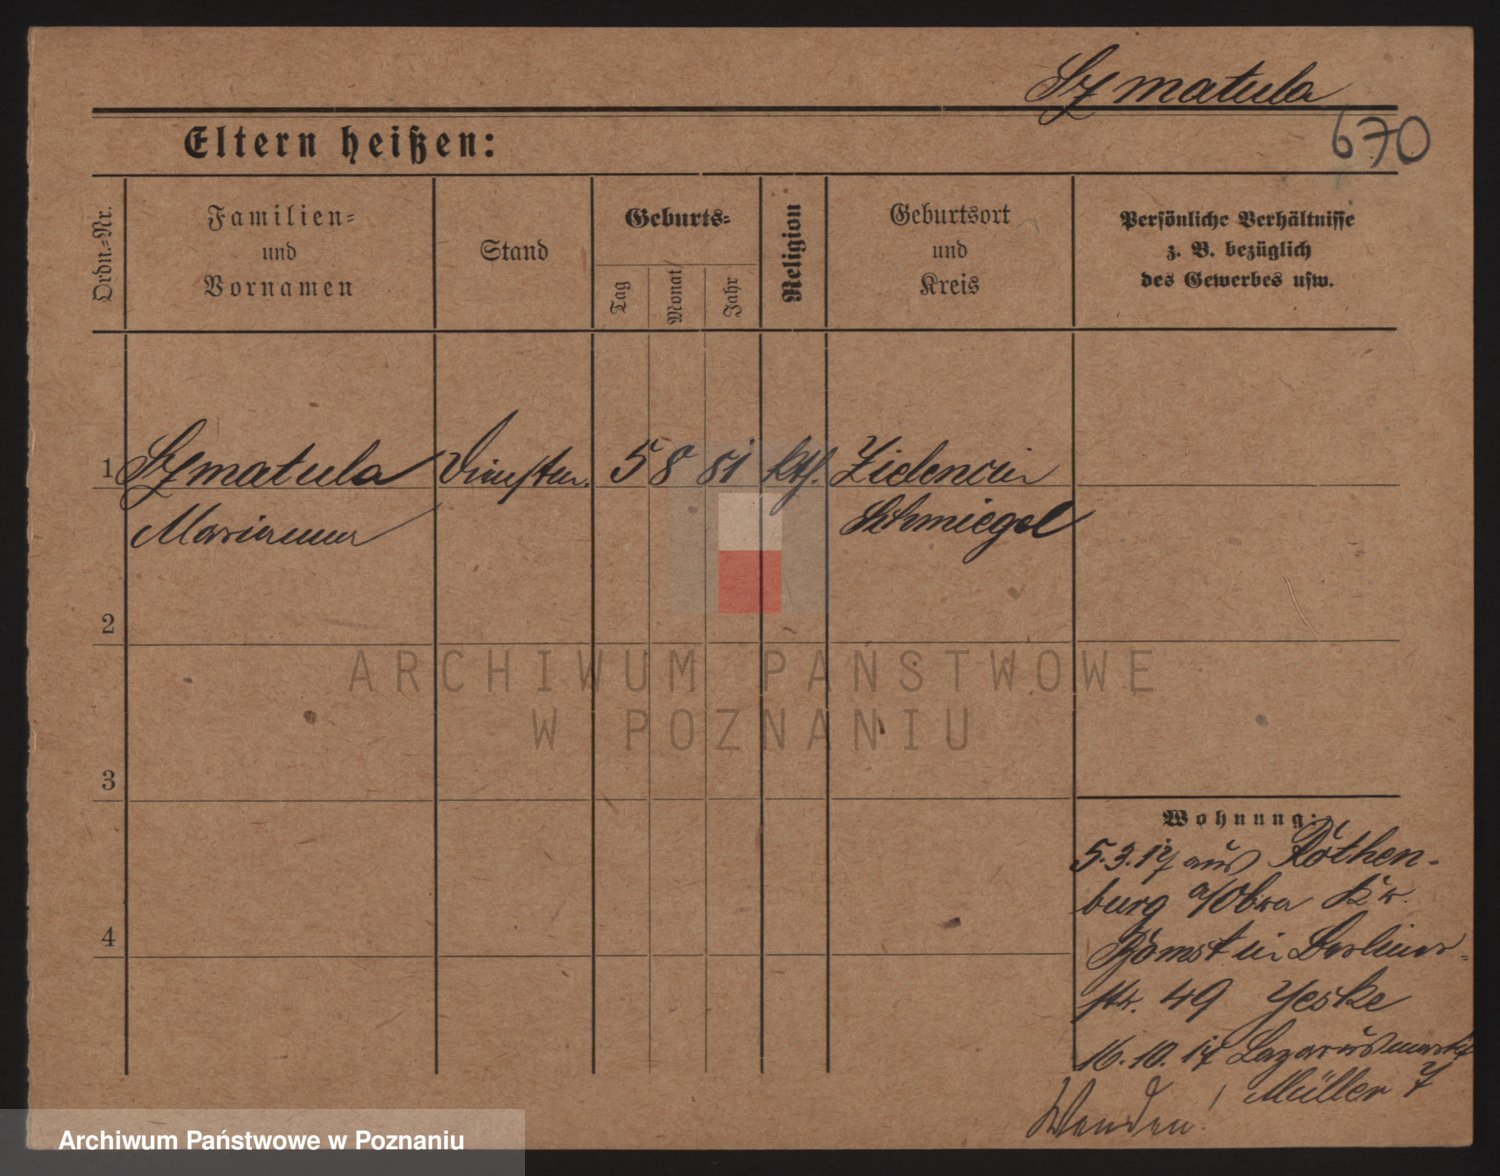 Szmatula
670
Eltern heißen:
Ordn.=Nr.
Familien=
und
Vornamen
Stand
Geburts=
Tag
Monat
Jahr
Religion
Geburtsort
und
Kreis
Persönliche Verhältnisse
z. B. bezüglich
des Gewerbes usw.
1 Szmatula Dienstm. 5 8 81 kth. Zielencin
Marianna Schmiegel
2
3
4
ARCHIWUM PAŃSTWOWE
W POZNANIU
Wohnung:
5.3.17 aus Rothen-
burg a/Obra Kr.
Bomst in Berliner-
str. 49 Jeske
16.10.17 Lazarusmarkt
Müller 7
Wenden!
Archiwum Państwowe w Poznaniu